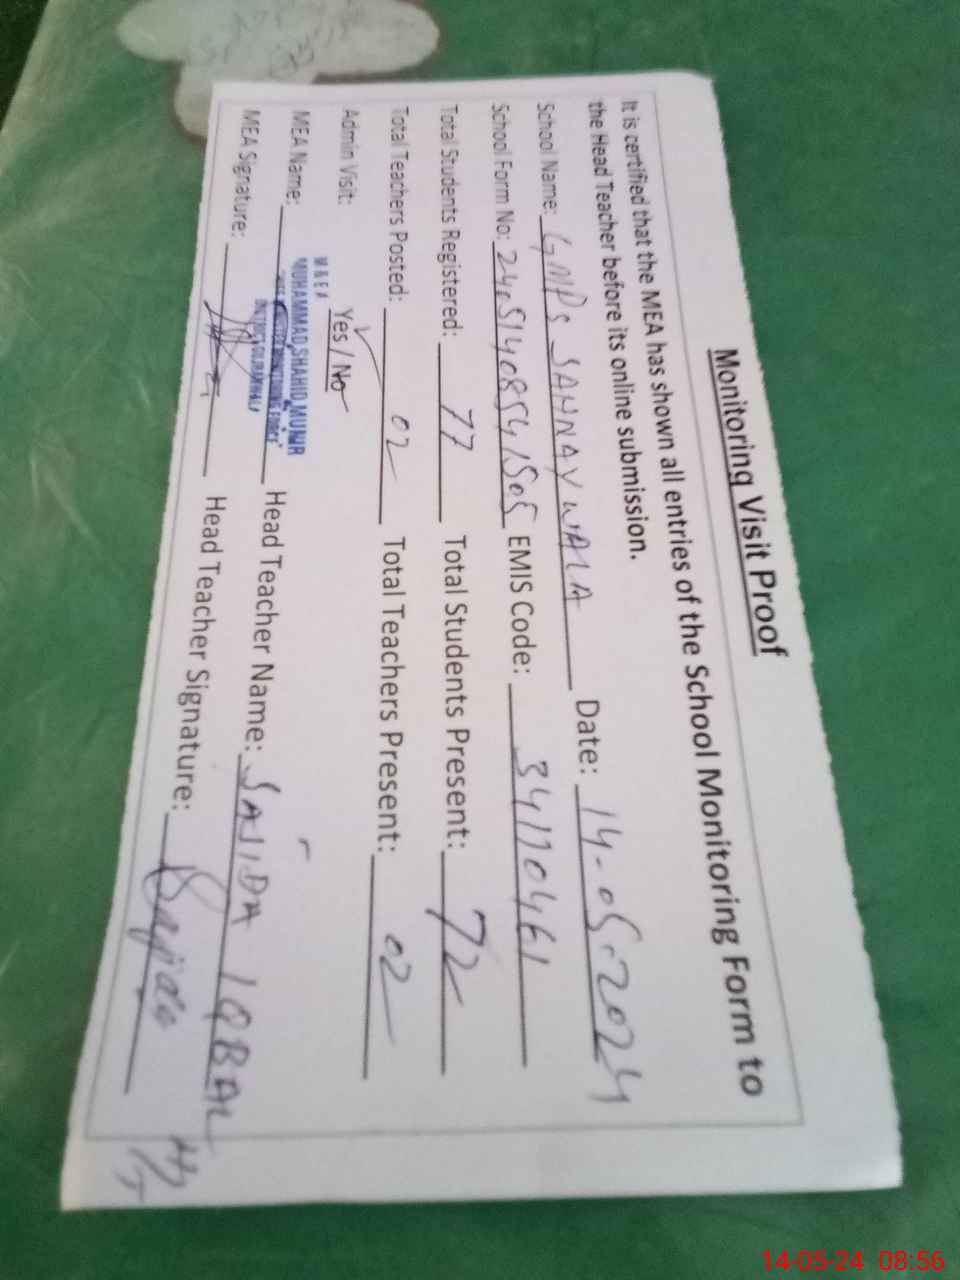 Monitoring Visit Proof
It is certified that the MEA has shown all entries of the School Monitoring Form to
the Head Teacher before its online submission.
School Name: GMPS SANNAYWALA Date: 14-05-2024
School Form No: EMIS Code: 34120461
Total Students Registered: 77 Total Students Present: 72
Total Teachers Posted: 02 Total Teachers Present: 02
Admin Visit: Yes / No
M & E A
MEA Name: MUHAMMAD SHAHID MUNIR Head Teacher Name: SAJIDA IQBAL
MEA Signature: Head Teacher Signature: Sajida
14-05-24 08:56